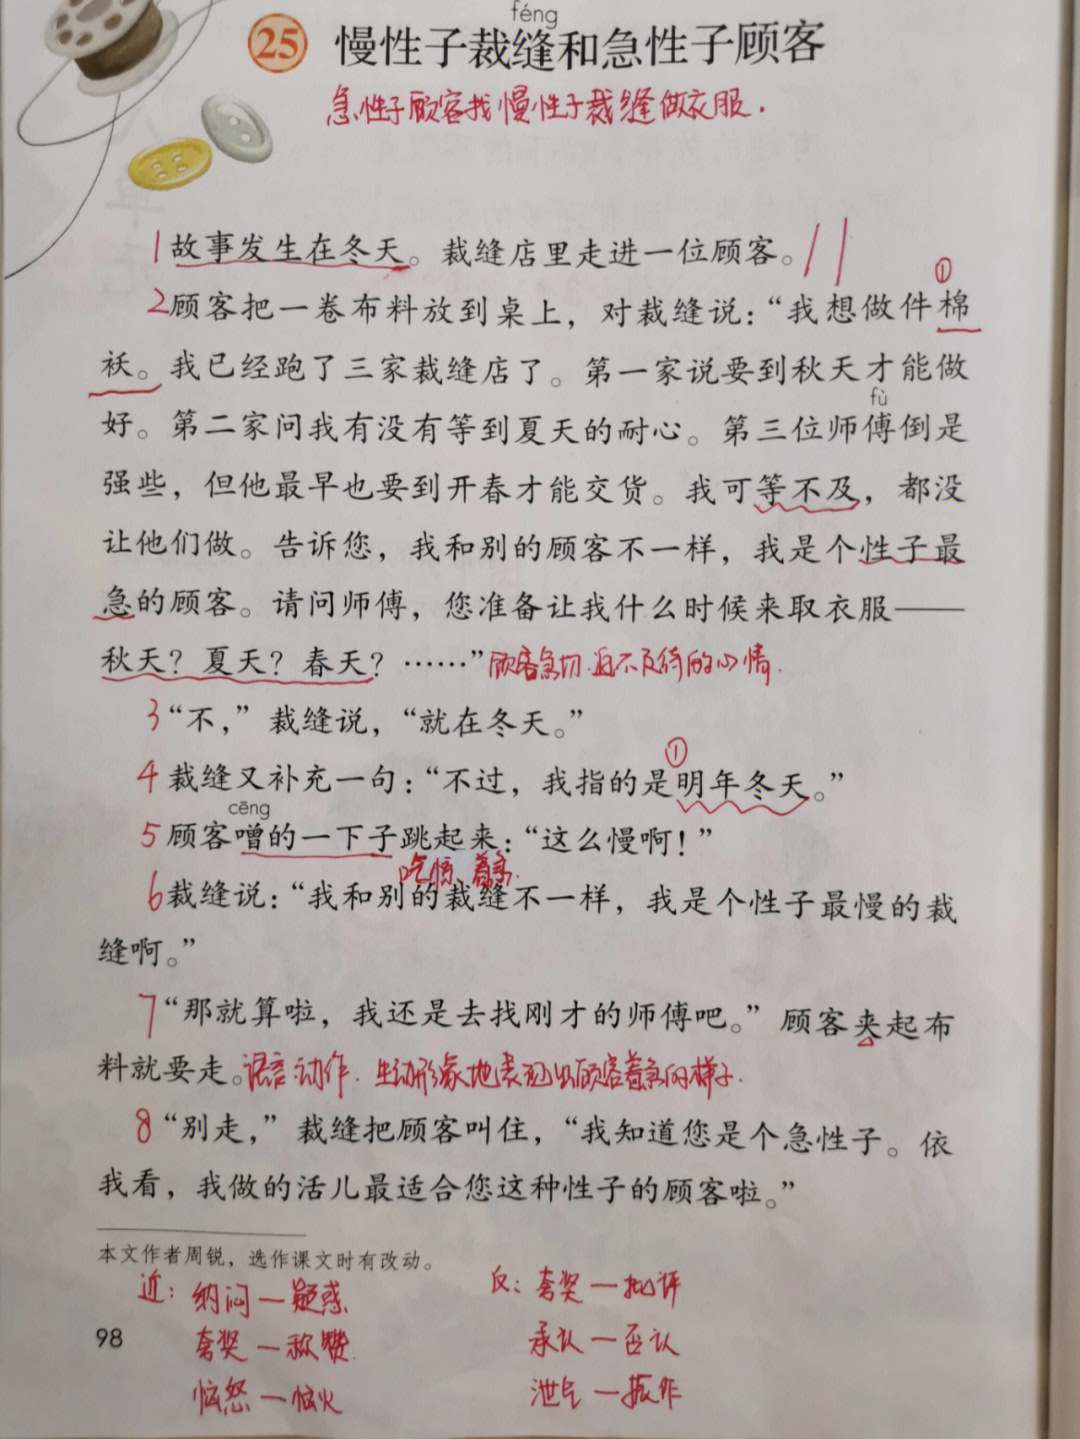 féng
25 慢性子裁缝和急性子顾客
急性子顾客找慢性子裁缝做衣服.
1 故事发生在冬天。裁缝店里走进一位顾客。
①
2 顾客把一卷布料放到桌上，对裁缝说：“我想做件棉
袄。我已经跑了三家裁缝店了。第一家说要到秋天才能做
fù
好。第二家问我有没有等到夏天的耐心。第三位师傅倒是
强些，但他最早也要到开春才能交货。我可等不及，都没
让他们做。告诉您，我和别的顾客不一样，我是个性子最
急的顾客。请问师傅，您准备让我什么时候来取衣服——
秋天？夏天？春天？……” 顾客急切.迫不及待的心情.
3 “不，”裁缝说，“就在冬天。”
①
4 裁缝又补充一句：“不过，我指的是明年冬天。”
cēng
5 顾客噌的一下子跳起来：“这么慢啊！”
吃惊、着急.
6 裁缝说：“我和别的裁缝不一样，我是个性子最慢的裁
缝啊。”
7 “那就算啦，我还是去找刚才的师傅吧。”顾客夹起布
料就要走。语言.动作.生动形象地表现出顾客着急的样子.
8 “别走，”裁缝把顾客叫住，“我知道您是个急性子。依
我看，我做的活儿最适合您这种性子的顾客啦。”
本文作者周锐，选作课文时有改动。
近：纳闷—疑惑 反：夸奖—批评
98 夸奖—称赞 承认—否认
恼怒—恼火 泄气—振作